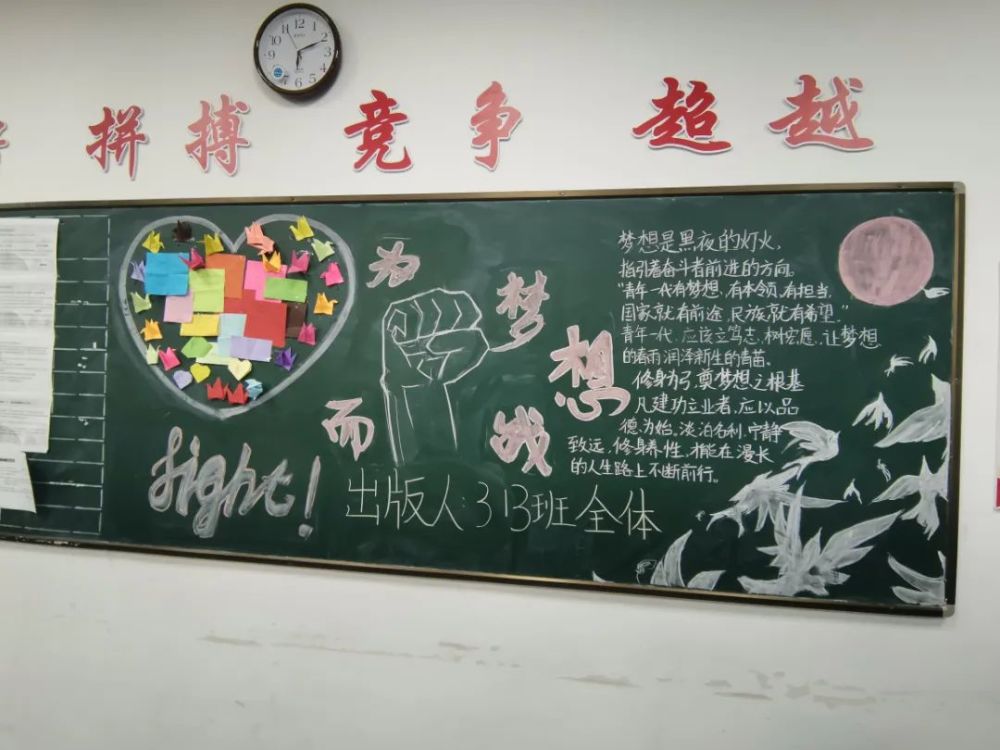 拼搏 竞争 超越
为梦想而战
fight!
梦想是黑夜的灯火,
指引着奋斗者前进的方向。
"青年一代有梦想,有本领,有担当,
国家就有前途,民族就有希望."
青年一代,应该立笃志,树宏愿,让梦想
的春雨润泽新生的青苗。
修身为弓,奠梦想之根基
凡建功立业者,应以品
德为始,淡泊名利,宁静
致远,修身养性,才能在漫长
的人生路上不断前行。
出版人:313班全体
12
1
2
3
4
5
6
7
8
9
10
11